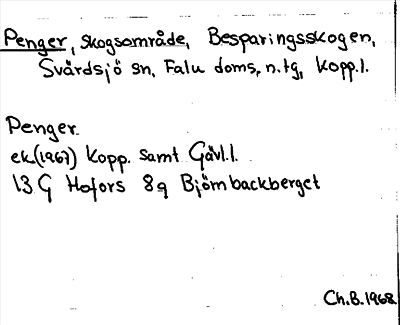 Penger, skogsområde, Besparingsskogen,
Svärdsjö sn, Falu doms, n.tg, Kopp.l.
Penger.
ek(1967) Kopp. samt Gävl.l.
13 G Hofors 8q Björnbackberget
Ch.B.1968